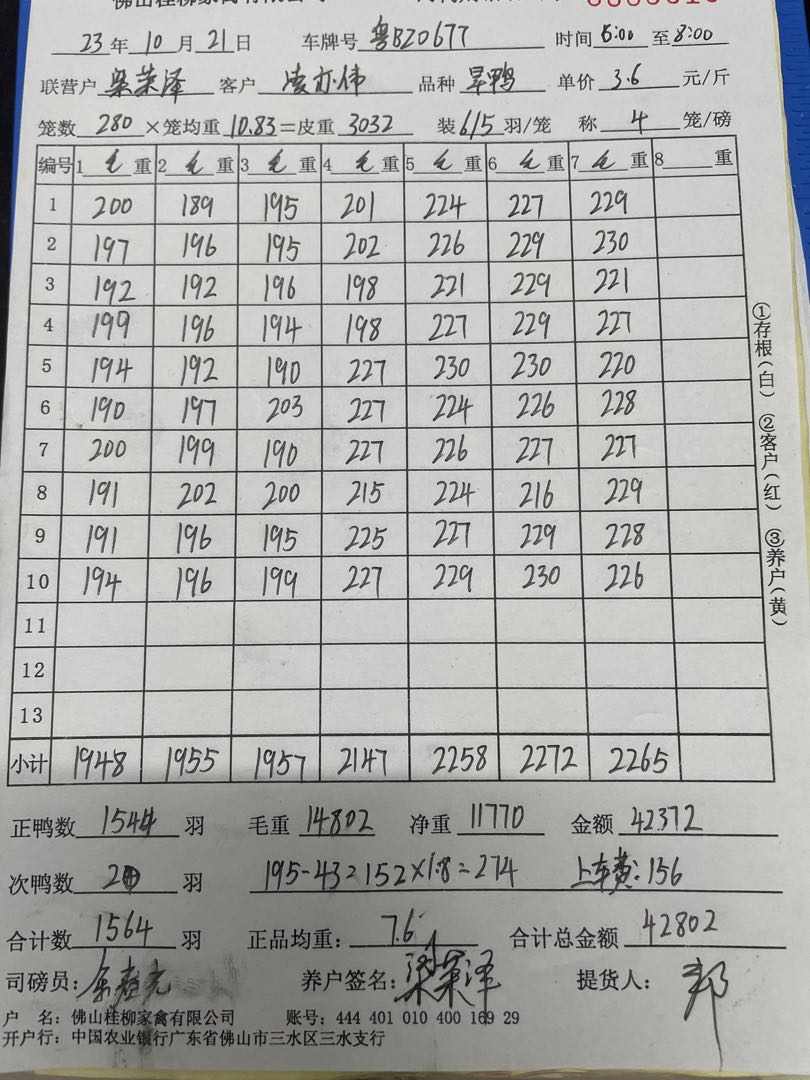 佛山桂柳家禽有限公司
23年10月21日 车牌号 粤BZ0677 时间 6:00 至 8:00
联营户 梁荣泽 客户 凌亦伟 品种 旱鸭 单价 3.6 元/斤
笼数 280 ×笼均重 10.83 =皮重 3032 装 6/5 羽/笼 称 4 笼/磅
编号 1 毛 重 2 毛 重 3 毛 重 4 毛 重 5 毛 重 6 毛 重 7 毛 重 8 重
1 200 189 195 201 224 227 229
2 197 196 195 202 226 229 230
3 192 192 196 198 221 229 221
4 199 196 194 198 227 229 227
5 194 192 190 227 230 230 220
6 190 197 203 227 224 226 228
7 200 199 190 227 226 227 227
8 191 202 200 215 224 216 229
9 191 196 195 225 227 229 228
10 194 196 199 227 229 230 226
11
12
13
小计 1948 1955 1957 2147 2258 2272 2265
①存根(白) ②客户(红) ③养户(黄)
正鸭数 1544 羽 毛重 14802 净重 11770 金额 42372
次鸭数 20 羽 195-43=152×1.8=274 上车费:156
合计数 1564 羽 正品均重: 7.6 合计总金额 42802
司磅员: 养户签名: 梁荣泽 提货人: 邦
户 名: 佛山桂柳家禽有限公司 账号: 444 401 010 400 169 29
开户行: 中国农业银行广东省佛山市三水区三水支行